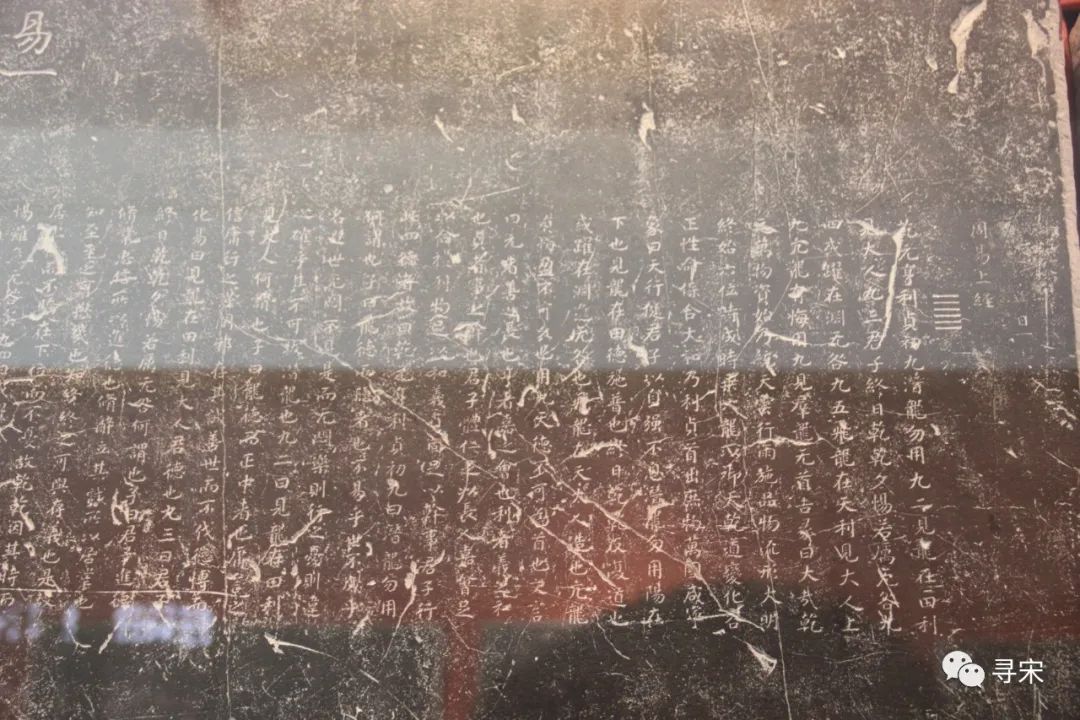 易
周易上經
元亨利貞初九潛龍勿用九二見龍在田利
見大人九三君子終日乾乾夕惕若厲无咎九
四或躍在淵无咎九五飛龍在天利見大人上
九亢龍有悔用九見羣龍无首吉彖曰大哉乾
萬物資始乃統天雲行雨施品物流形大明
終始六位時成時乘六龍以御天乾道變化各
正性命保合大和乃利貞首出庶物萬國咸寧
象曰天行健君子以自強不息潛龍勿用陽在
下也見龍在田德施普也終日乾乾反復道也
或躍在淵進无咎也飛龍在天大人造也亢龍
有悔盈不可久也用九天德不可為首也文言
曰元者善之長也亨者嘉之會也利者義之和
也貞者事之幹也君子體仁足以長人嘉會足
以合禮利物足以和義貞固足以幹事君子行
此四德者故曰乾元亨利貞初九曰潛龍勿用
何謂也子曰龍德而隱者也不易乎世不成乎
名遯世无悶不見是而无悶樂則行之憂則違
之確乎其不可拔潛龍也九二曰見龍在田利
見大人何謂也子曰龍德而正中者也庸言之
信庸行之謹閑邪存其誠善世而不伐德博而
化易曰見龍在田利見大人君德也九三曰君子
終日乾乾夕惕若厲无咎何謂也子曰君子進德
脩業忠信所以進德也脩辭立其誠所以居業也
知至至之可與幾也知終終之可與存義也是故
居上位而不驕在下位而不憂故乾乾因其時而
惕雖危无咎矣九四曰
寻宋